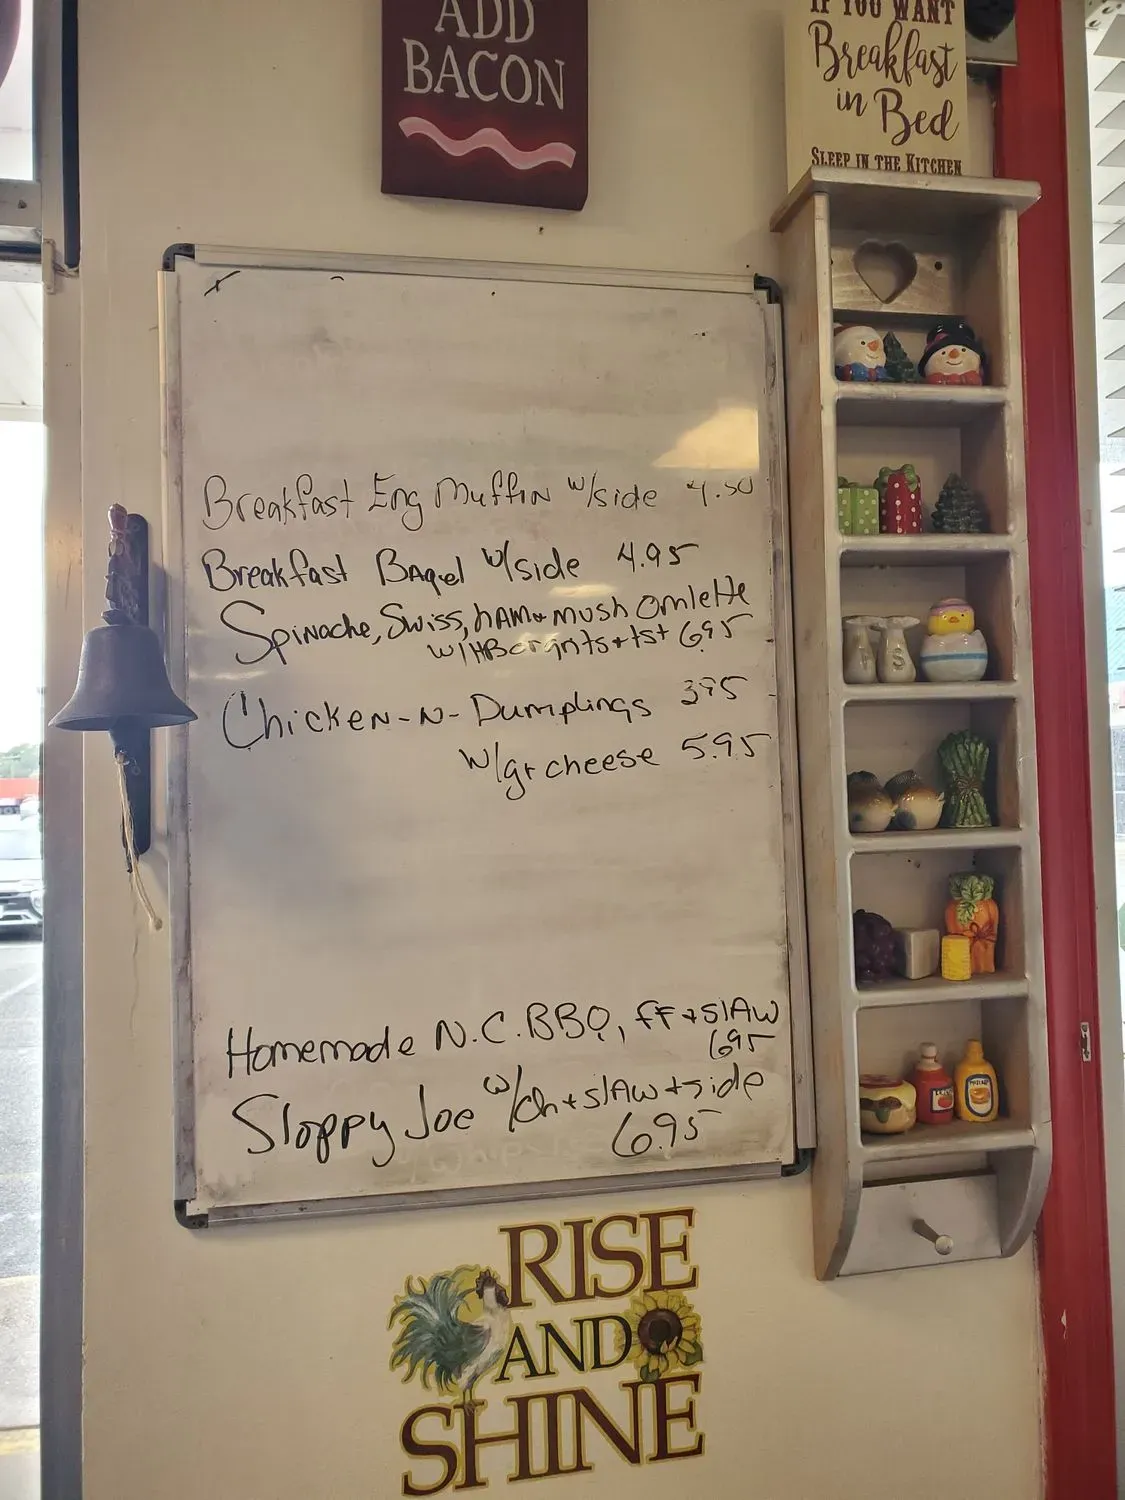 ADD
BACON
IF YOU WANT
Breakfast
in Bed
SLEEP IN THE KITCHEN
Breakfast Eng Muffin w/side 4.50
Breakfast Bagel w/side 4.95
Spinache, Swiss, hAM + MUSh Omlette
w/HB or grits + tst 6.95
Chicken-N-Dumplings 3.95
w/gr cheese 5.95
Homemade N.C. BBQ, FF + slAw
6.95
Sloppy Joe w/ch + slAw + side
6.95
S
RISE
AND
SHINE